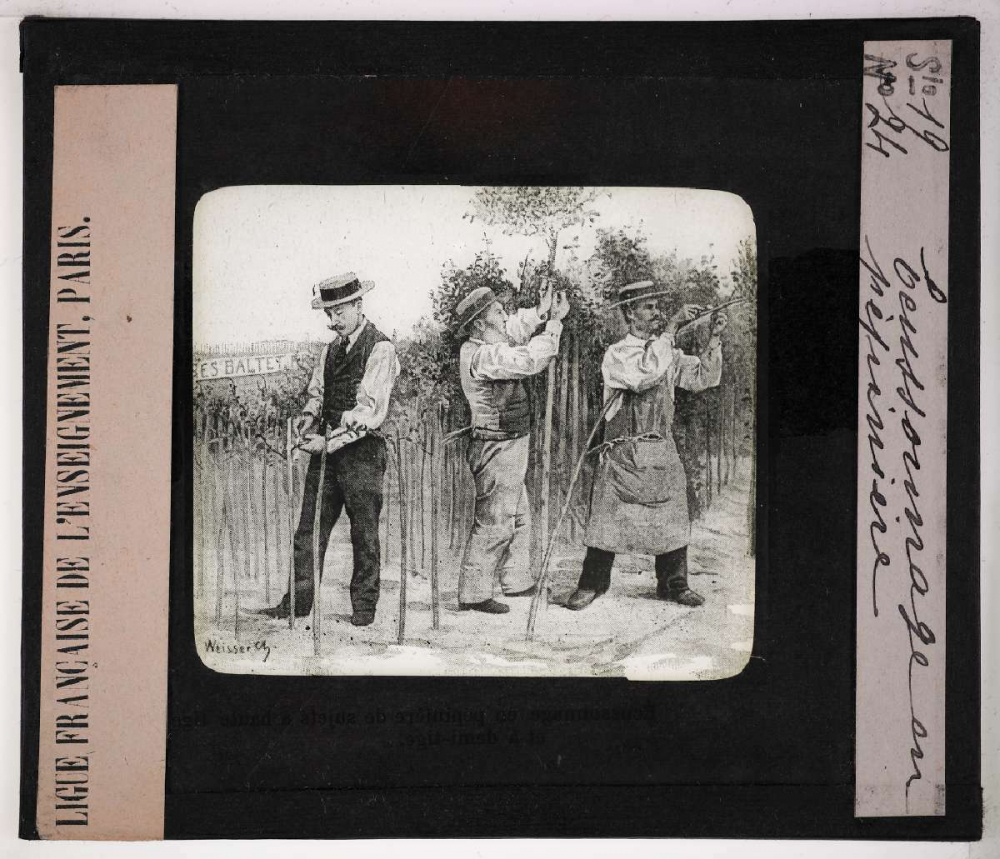 LIGUE FRANÇAISE DE L'ENSEIGNEMENT, PARIS.
ES BALTET
Weisser
Ecussonnage en pépinière de sujets à haute tige
et à demi-tige.
Sie 19
No 24
Ecussonnage en
pépinière